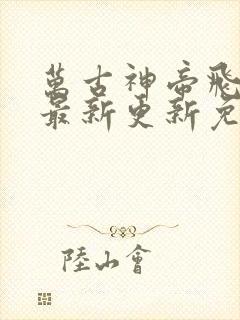 萬古神帝飛
最新更新免
陸山會